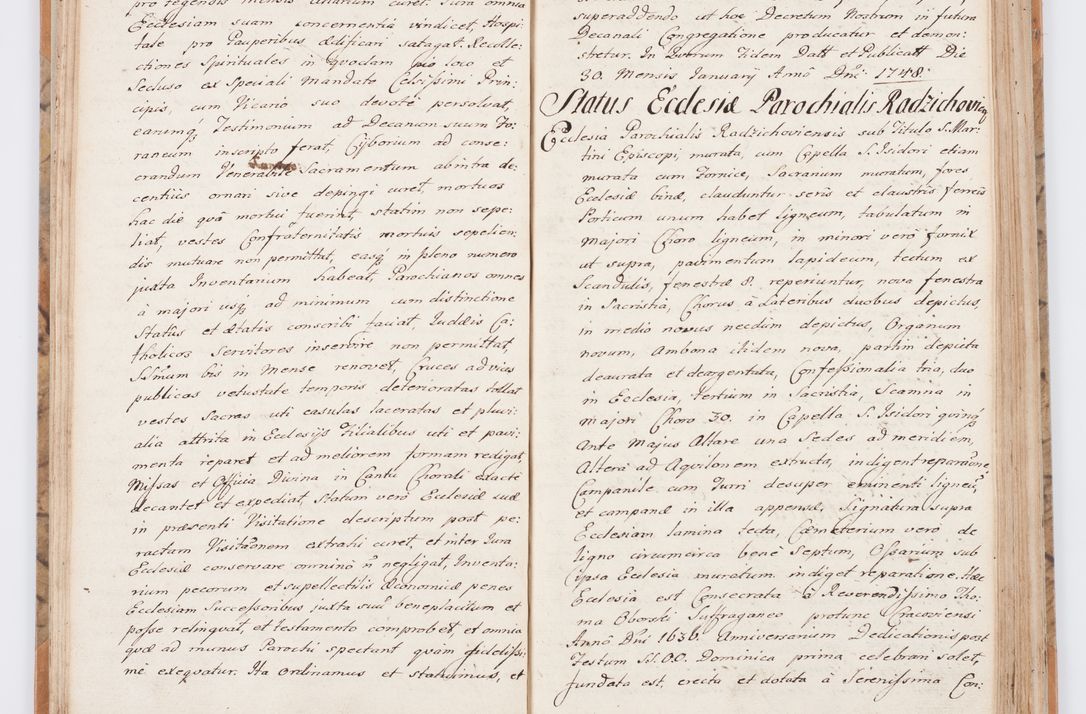 pro tegensis mensis unarium curet. Jura omnia
Ecclesiam suam concernentia vindicet, Hospi:
tale pro Pauperibus ædificari satagat. Recolle:
ctiones Spirituales in quodam pio loco et
Secluso ex Speciali Mandato Celsissimi Prin:
cipis, cum Vicario suo devotè persolvat,
earumq; Testimonium ad Decanum suum Fo:
raneum inscripto ferat, Cyborium ad conse:
crandum Venerabile Sacramentum abintra de:
centius ornari sive depingi curet, mortuos
hac die quâ mortui fuerint statim non sepe:
liat, vestes Confraternitatis mortuis sepelien:
dis mutuare non permittat, easq; in pleno numero
juxta Inventarium habeat, Parochianos omnes
à majori usq; ad minimum cum distinctione
Status et ætatis conscribi faciat, Judæis Ca:
tholicos Servitores inservire non permittat,
SSmum bis in Mense renovet, Cruces ad vias
publicas vetustate temporis deterioratas tollat
vestes Sacras uti casulas laceratas et pluvi:
alia attrita in Ecclesijs Filialibus uti et pavi:
menta reparet et ad meliorem formam redigat
Missas et Officia Divina in Cantu Chorali exactè
decantet et expediat, Statum verò Ecclesiæ suæ
in præsenti Visitatione descriptum post pe:
ractam Visitãonem extrahi curet, et inter Jura
Ecclesiæ conservare omninò ñ negligat, Inventa:
rium pecorum et supellectilis Œconomicæ penes
Ecclesiam Successoribus juxta suũ beneplacitum et
posse relinquat, et testamento comprobet, et omnia
quæ ad munus Parochi spectant quàm fidelissi:
mè exequatur. Ita Ordinamus et statuimus, et
superaddendo ut hoc Decretum Nostrum in futura
Decanali Congregatione producatur et demon:
stretur. In Quorum Fidem Datt et Publicatt Die
30. Mensis January Anno Dni 1748.
Status Ecclesiæ Parochialis Radzichoviẽn
Ecclesia Parochialis Radzichoviensis sub Titulo S. Mar:
tini Episcopi, murata, cum Capella S. Isidori etiam
murata cum Fornice, Sacrarium muratum, fores
Ecclesiæ binæ, clauduntur seris et claustris ferreis
Porticum unum habet ligneum, tabulatum in
majori Choro ligneum, in minori verò fornix
ut supra, pavimentum lapideum, tectum ex
Scandulis, fenestræ 8. reperiuntur, nova fenestra
in Sacristia, Chorus à Lateribus duobus depictus,
in medio novus necdum depictus, Organum
novum, Ambona itidem nova, partim depicta
deaurata et deargentata, Confessionalia tria, duo
in Ecclesia, tertium in Sacristia, Scamna in
majori Choro 30. in Capella S. Isidori quinq;
Ante Majus Altare una Sedes ad meridiem,
Altera ad Aquilonem extructa, indigent reparaõne,
Campanile cum Turri desuper eminenti ligneũ,
et campanæ in illa appensæ, Signatura supra
Ecclesiam lamina tecta, Cæmeterium verò de
ligno circumcirca benè septum, Ossarium sub
ipsa Ecclesia muratum indiget reparatione. Hæc
Ecclesia est Consecrata à Reverendissimo Tho:
ma Oborski Suffraganeo protunc Cracoviensi
Annô Dni 1636. Anniversarium Dedicationis post
Festum SS. OO. Dominica prima celebrari solet,
fundata est, erecta et dotata à Serenissima Con: